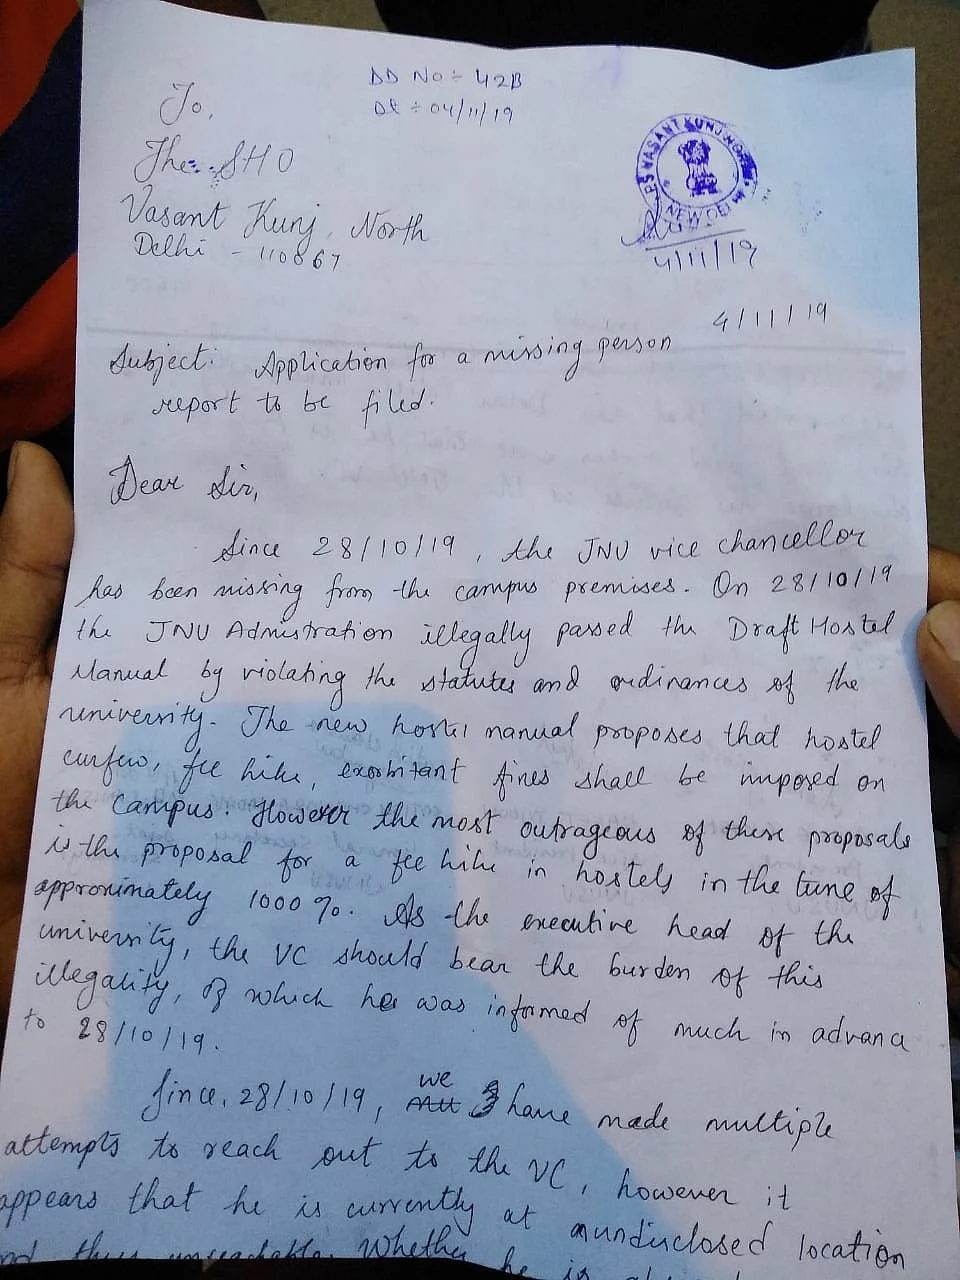 DD No ÷ 42B
Dt ÷ 04/11/19
To,
The SHO
Vasant Kunj, North
Delhi - 110867
P.S VASANT KUNJ NORTH
NEW DELHI
4/11/19
4/11/19
Subject: Application for a missing person
report to be filed.
Dear Sir,
Since 28/10/19, the JNU vice chancellor
has been missing from the campus premises. On 28/10/19
the JNU Admistration illegally passed the Draft Hostel
Manual by violating the statutes and ordinances of the
university. The new hostel manual proposes that hostel
curfew, fee hike, exorbitant fines shall be imposed on
the campus. However the most outrageous of these proposals
is the proposal for a fee hike in hostels in the tune of
approximately 1000%. As the executive head of the
university, the VC should bear the burden of this
illegality, of which he was informed of much in advance
to 28/10/19.
Since, 28/10/19, we have made multiple
attempts to reach out to the VC, however it
appears that he is currently at an undisclosed location
and thus unreachable. Whether he is